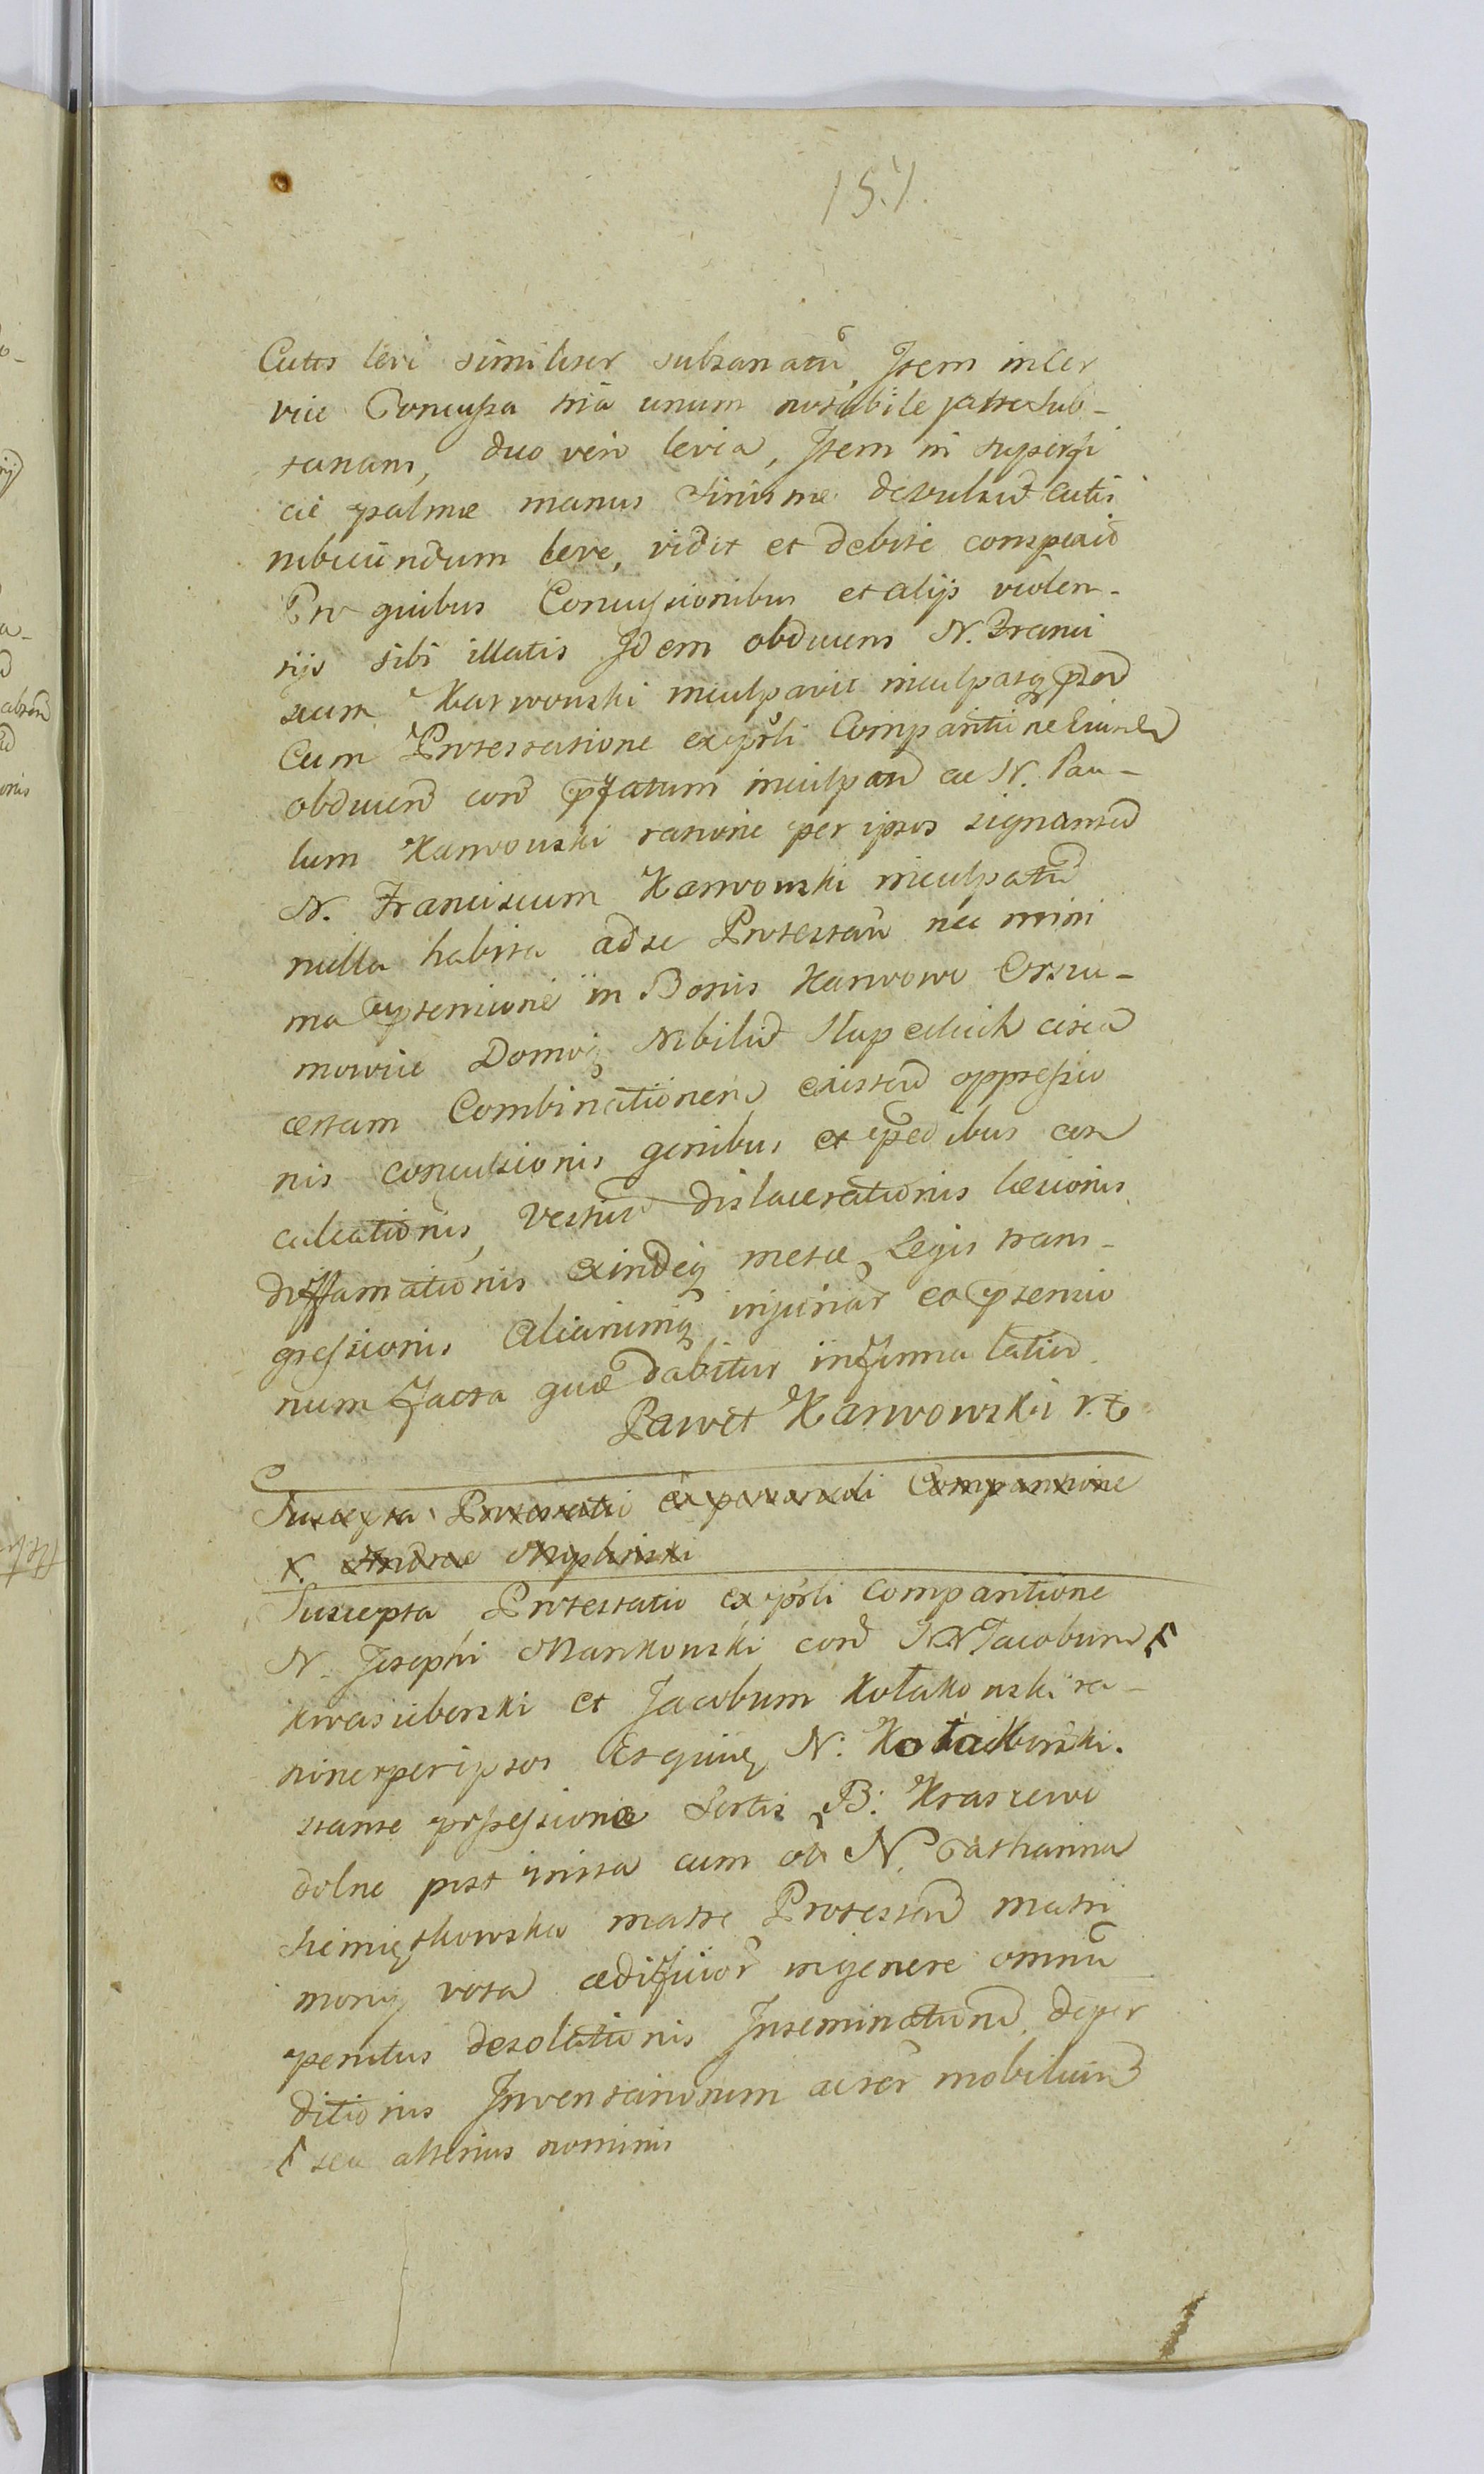 151.
Cutis levi similiter subsanatū, Item in Cer
vice Concussa tria unum notabile satis sub-
sanans, duo vero levia, Item in superfi
cie palmæ manus sinistræ devulsū cutis
rubicundum leve, vidit et debite conspexit
Pro quibus Concussionibus et alijs violen-
tijs sibi illatis Idem obducens N. Franci
scum Karwowski inculpavit inculpatq
Cum Protestatione ex psli Comparitione Eiusd
obducen con pfatum inculpan ac N. Pau-
lum Karwowski ratione per ipsos signanter
N. Franciscum Karwowski inculpatū
nulla habita ad se Protestan nec mini
ma in Bonis Karwowo Orszu-
mowice Domoq Nobiliū circa
certam Combinationem existen oppressio
nis concussionis genibus et pedibus con
culcationis, Vestiū dislacerationis læsionis
diffamationis exindeq metæ Legis trans-
gressionis aliarumq injuriar eo
num facta quæ dabitur in forma latiū
Paweł Karwowski
Suscepta Protestatio ex parati Comparitione
N. Andreæ
Suscepta Protestatio ex psli comparitione
N. Josephi Mankowski con NN Jacobum
Kwasieborski et Jacobum Kołakowski ra-
tione per ipsos N: Kołakowski.
stante possessione Sortis B: Kraszewo
dolne post inita cum N. Catharina
matre Protestan matri
monij vota ædificior in genere omniū
penitus desolationis Inseminationū deper
ditionis Inventariorum mobilium
seu alterius nominis